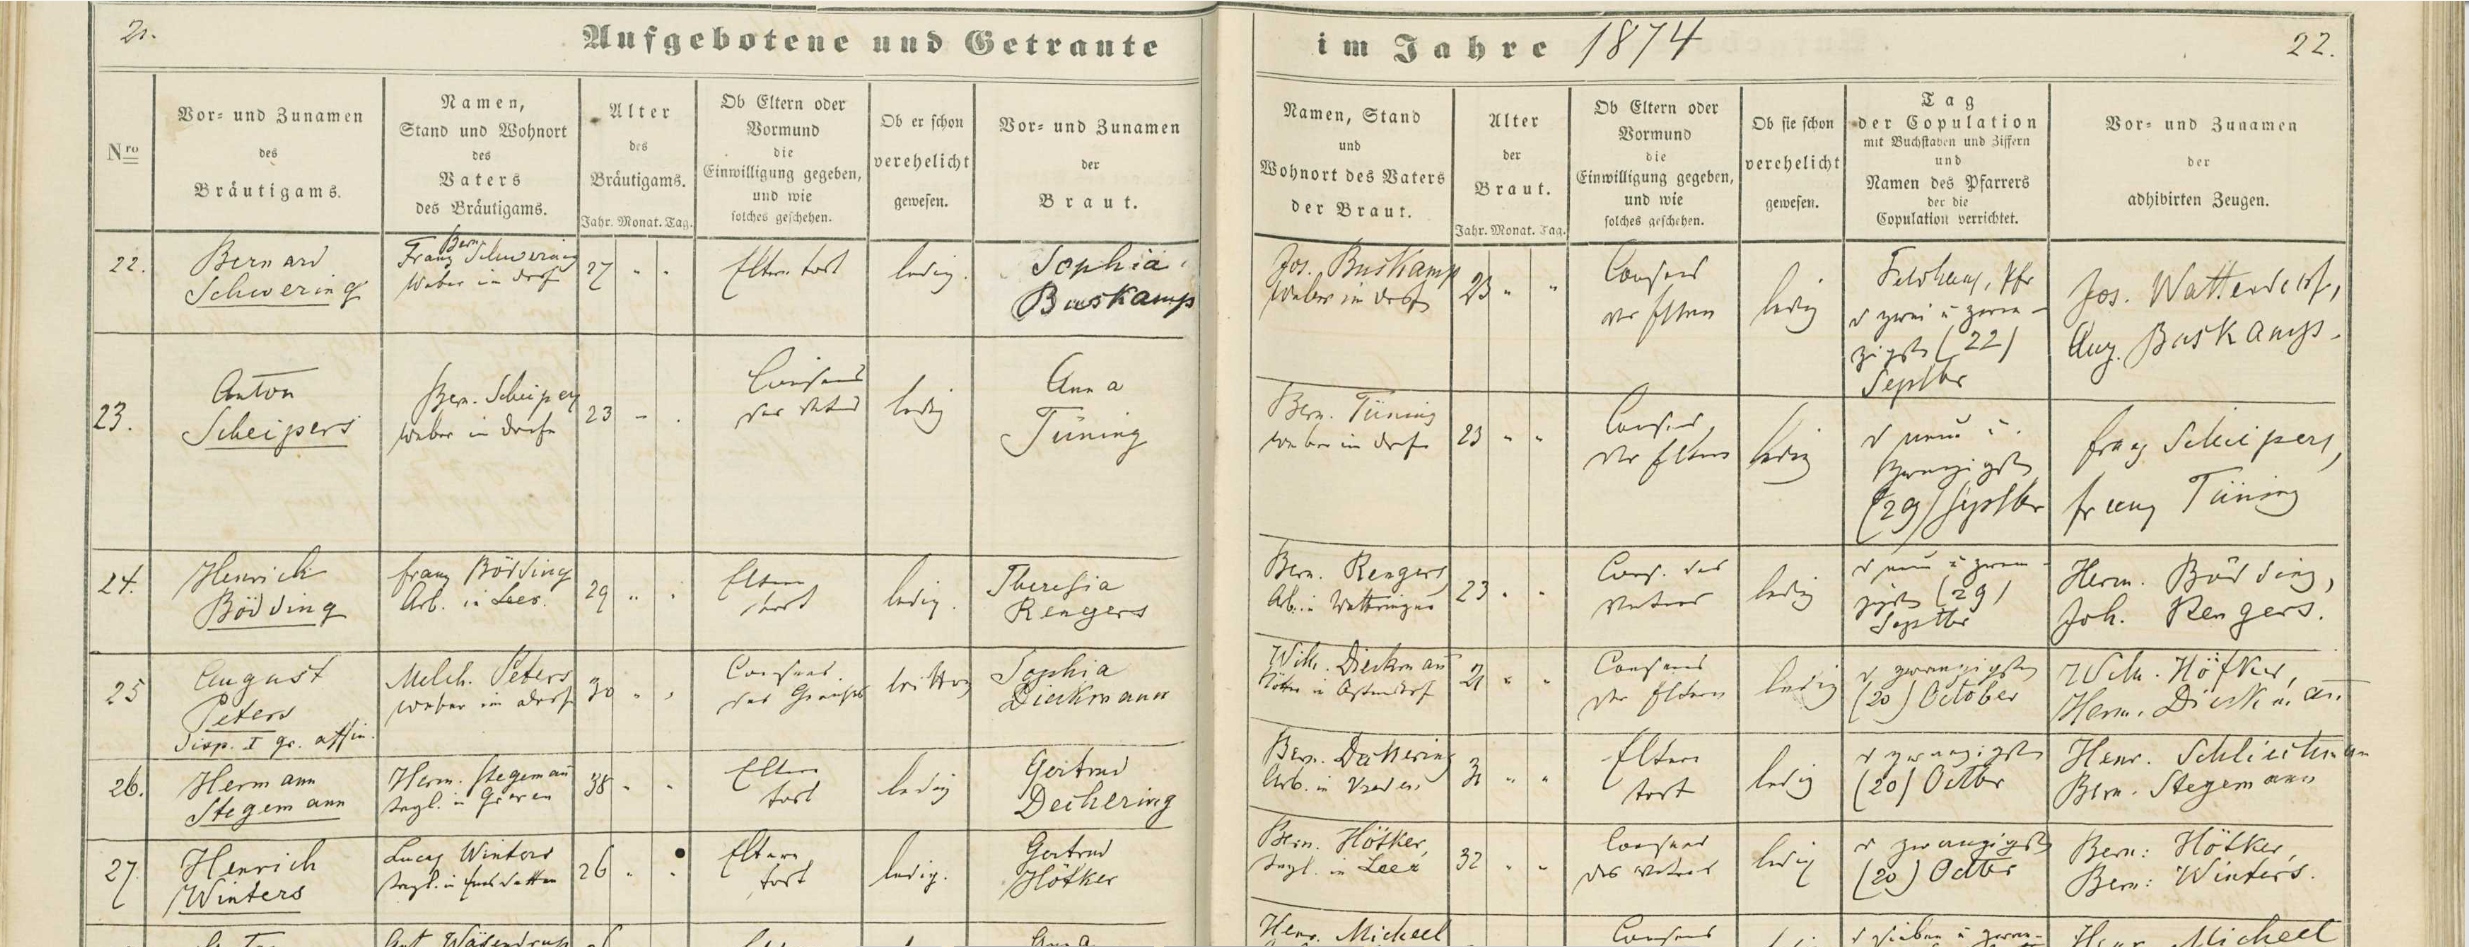 21.
Aufgebotene und Getraute
Nro
Vor= und Zunamen
des
Bräutigams.
Namen,
Stand und Wohnort
des
Vaters
des Bräutigams.
Alter
des
Bräutigams.
Jahr. Monat. Tag.
Ob Eltern oder
Vormund
die
Einwilligung gegeben,
und wie
solches geschehen.
Ob er schon
verehelicht
gewesen.
Vor= und Zunamen
der
Braut.
22.
Bernard
Schwering
Bern
Franz Schwering
Weber im Dorf
27 " "
Eltern todt
ledig.
Sophia
Buskamp
23.
Anton
Scheipers
Bern. Scheipers
Weber im Dorfe
23 " "
Consens
des Vaters
ledig
Anna
Tüning
24.
Henrich
Bödding
Franz Bödding
Arb. in Leer.
29 " "
Eltern
todt
ledig.
Theresia
Rengers
25
August
Peters
Disp. I gr. affin.
Melch. Peters
Weber im Dorf
30 " "
Consens
des
Wittwer
Sophia
Dieckmann
26.
Hermann
Stegemann
Herm. Stegemañ
Tagl. in Greven
38 " "
Eltern
todt
ledig
Gertrud
Deckering
27.
Henrich
Winters
Lucas Winters
Tagl. in
26 " "
Eltern
todt
ledig.
Gertrud
Hötker
Anna
im Jahre 1874
22.
Namen, Stand
und
Wohnort des Vaters
der Braut.
Alter
der
Braut.
Jahr. Monat. Tag.
Ob Eltern oder
Vormund
die
Einwilligung gegeben,
und wie
solches geschehen.
Ob sie schon
verehelicht
gewesen.
Tag
der Copulation
mit Buchstaben und Ziffern
und
Namen des Pfarrers
der die
Copulation verrichtet.
Vor= und Zunamen
der
adhibirten Zeugen.
Jos. Buskamp
Weber im Dorf
23 " "
Consens
der Eltern
ledig
Feldhaus, Pfr
d zwei u zwan-
zigste (22)
Septbr
Jos. Wattendorf,
Aug. Buskamp.
Bern. Tüning
Weber im Dorfe
23 " "
Consens
der Eltern
ledig
d neun u.
zwanzigste
(29) Septbr
Franz Scheipers,
Franz Tüning
Bern. Rengers
Arb. in Wettringen
23 " "
Cons. des
Vaters
ledig
d neun u zwan-
zigste (29)
Septbr
Herm. Bödding,
Joh. Rengers.
Wilh. Dieckmañ
in Ostendorf
21 " "
Consens
der Eltern
ledig
d zwanzigste
(20) October
Wilh. Höfker,
Herm. Dieckmañ
Bern. Deckering
Arb. in Vreden
31 " "
Eltern
todt
ledig
d zwanzigste
(20) Octbr
Henr. Schlichtmann
Bern. Stegemann
Bern. Hötker,
Tagl. in Leer
32 " "
Consens
des Vaters
ledig
d zwanzigste
(20) Octbr
Bern: Hötker,
Bern: Winters.
Henr. Micheel
Consens
d sieben u zwan-
Henr. Micheel